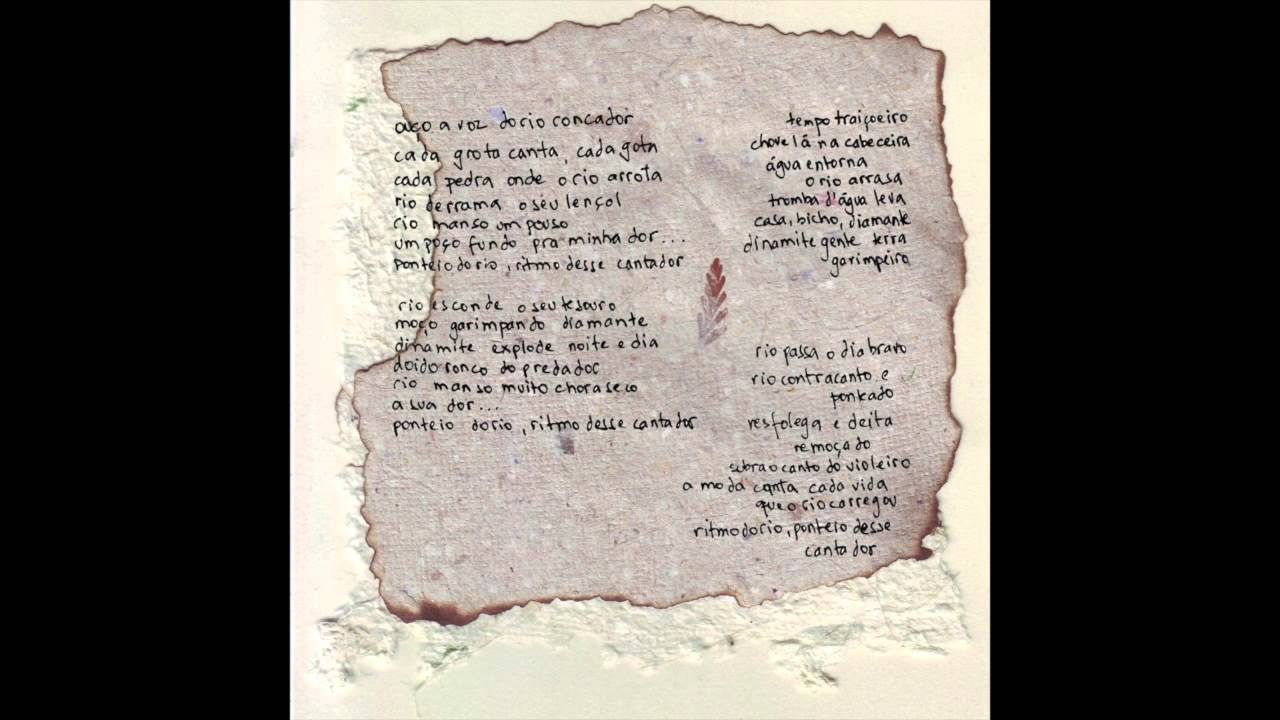 ouço a voz do rio roncador
cada grota canta, cada gota
cada pedra onde o rio arrota
rio derrama o seu lençol
rio manso um pouso
um poço fundo pra minha dor...
ponteio do rio, ritmo desse cantador
rio esconde o seu tesouro
moço garimpando diamante
dinamite explode noite e dia
doido ronco do predador
rio manso muito chora seco
a sua dor...
ponteio do rio, ritmo desse cantador
tempo traiçoeiro
chove lá na cabeceira
água entorna
o rio arrasa
tromba d'água leva
casa, bicho, diamante
dinamite gente terra
garimpeiro
rio passa o dia bravo
rio contracanto e
ponteado
resfolega e deita
remoçado
sobra o canto do violeiro
a moda canta cada vida
que o rio carregou
ritmo do rio, ponteio desse
cantador